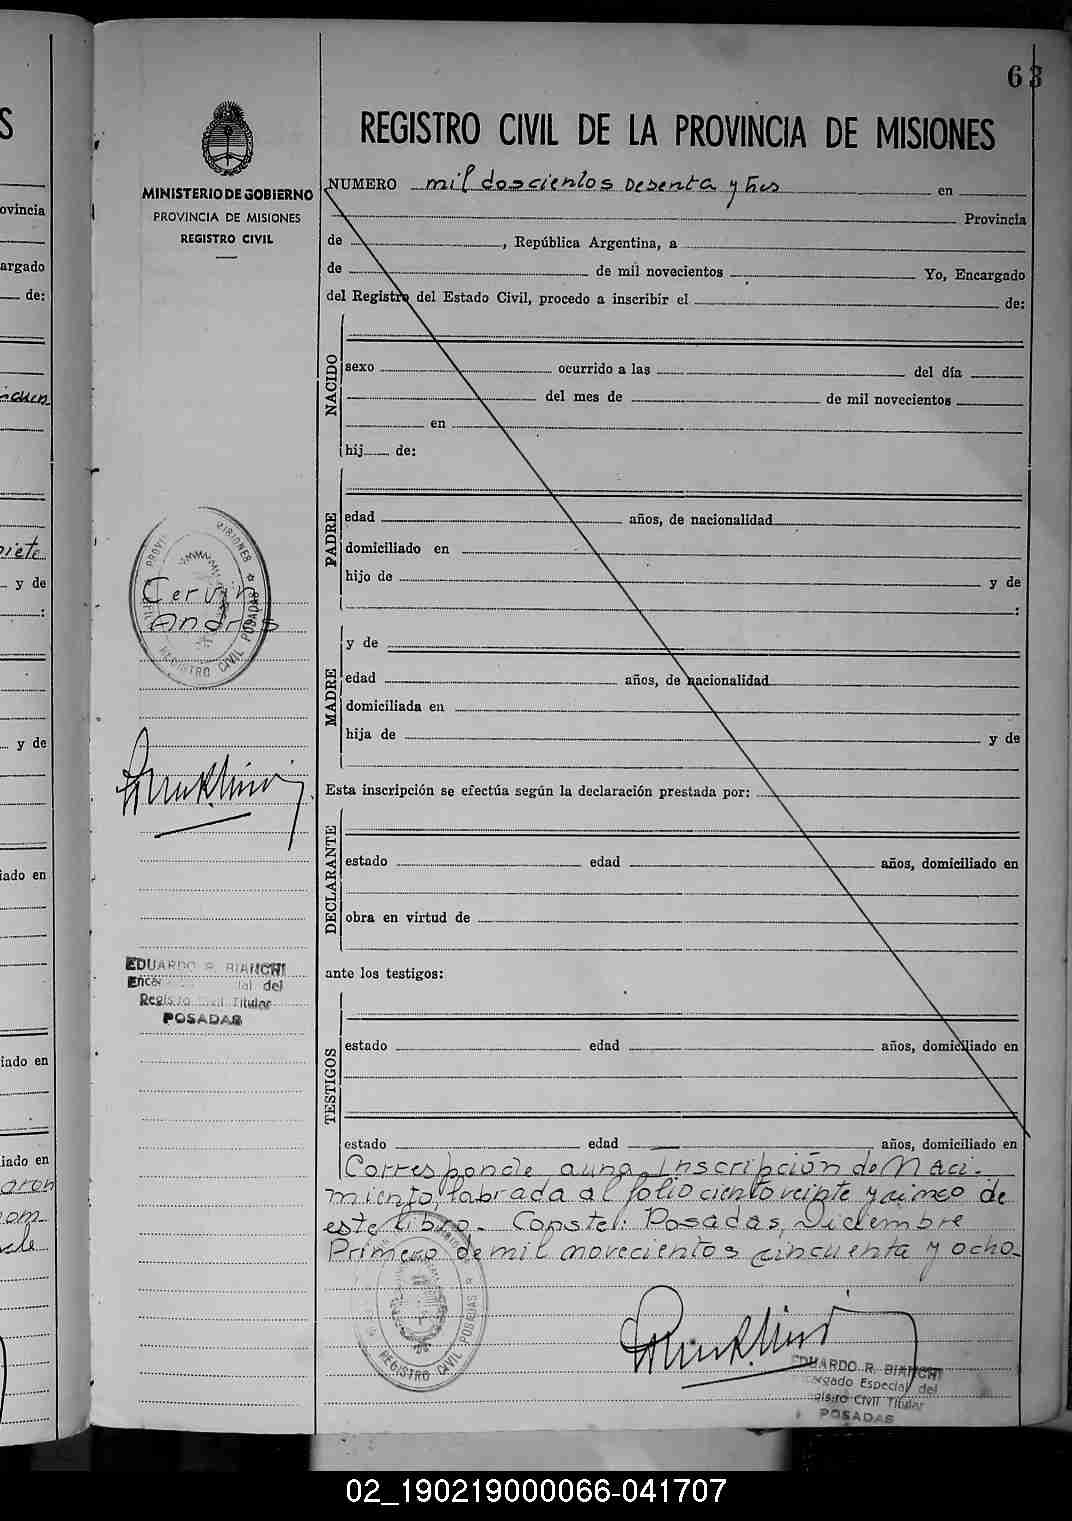 63
REGISTRO CIVIL DE LA PROVINCIA DE MISIONES
MINISTERIO DE GOBIERNO
PROVINCIA DE MISIONES
REGISTRO CIVIL
NUMERO mil doscientos sesenta y tres en
Provincia
de , República Argentina, a
de de mil novecientos Yo, Encargado
del Registro del Estado Civil, procedo a inscribir el de:
NACIDO
sexo ocurrido a las del día
del mes de de mil novecientos
en
hij de:
PADRE
edad años, de nacionalidad
domiciliado en
hijo de y de
:
MADRE
y de
edad años, de nacionalidad
domiciliada en
hija de y de
Esta inscripción se efectúa según la declaración prestada por:
DECLARANTE
estado edad años, domiciliado en
obra en virtud de
ante los testigos:
TESTIGOS
estado edad años, domiciliado en
estado edad años, domiciliado en
Corresponde a una inscripción de Naci-
miento, labrada al folio ciento veinte y cinco de
este libro.- Conste: Posadas, Diciembre
Primero de mil novecientos cincuenta y ocho-
REGISTRO CIVIL POSADAS
EDUARDO R. BIANCHI
Encargado Especial del
Registro Civil Titular
POSADAS
MISIONES
REGISTRO CIVIL POSADAS
Cervin
Andrés
EDUARDO R. BIANCHI
Encargado Especial del
Registro Civil Titular
POSADAS
S
ovincia
argado
de:
y de
:
y de
iado en
iado en
iado en
02_190219000066-041707